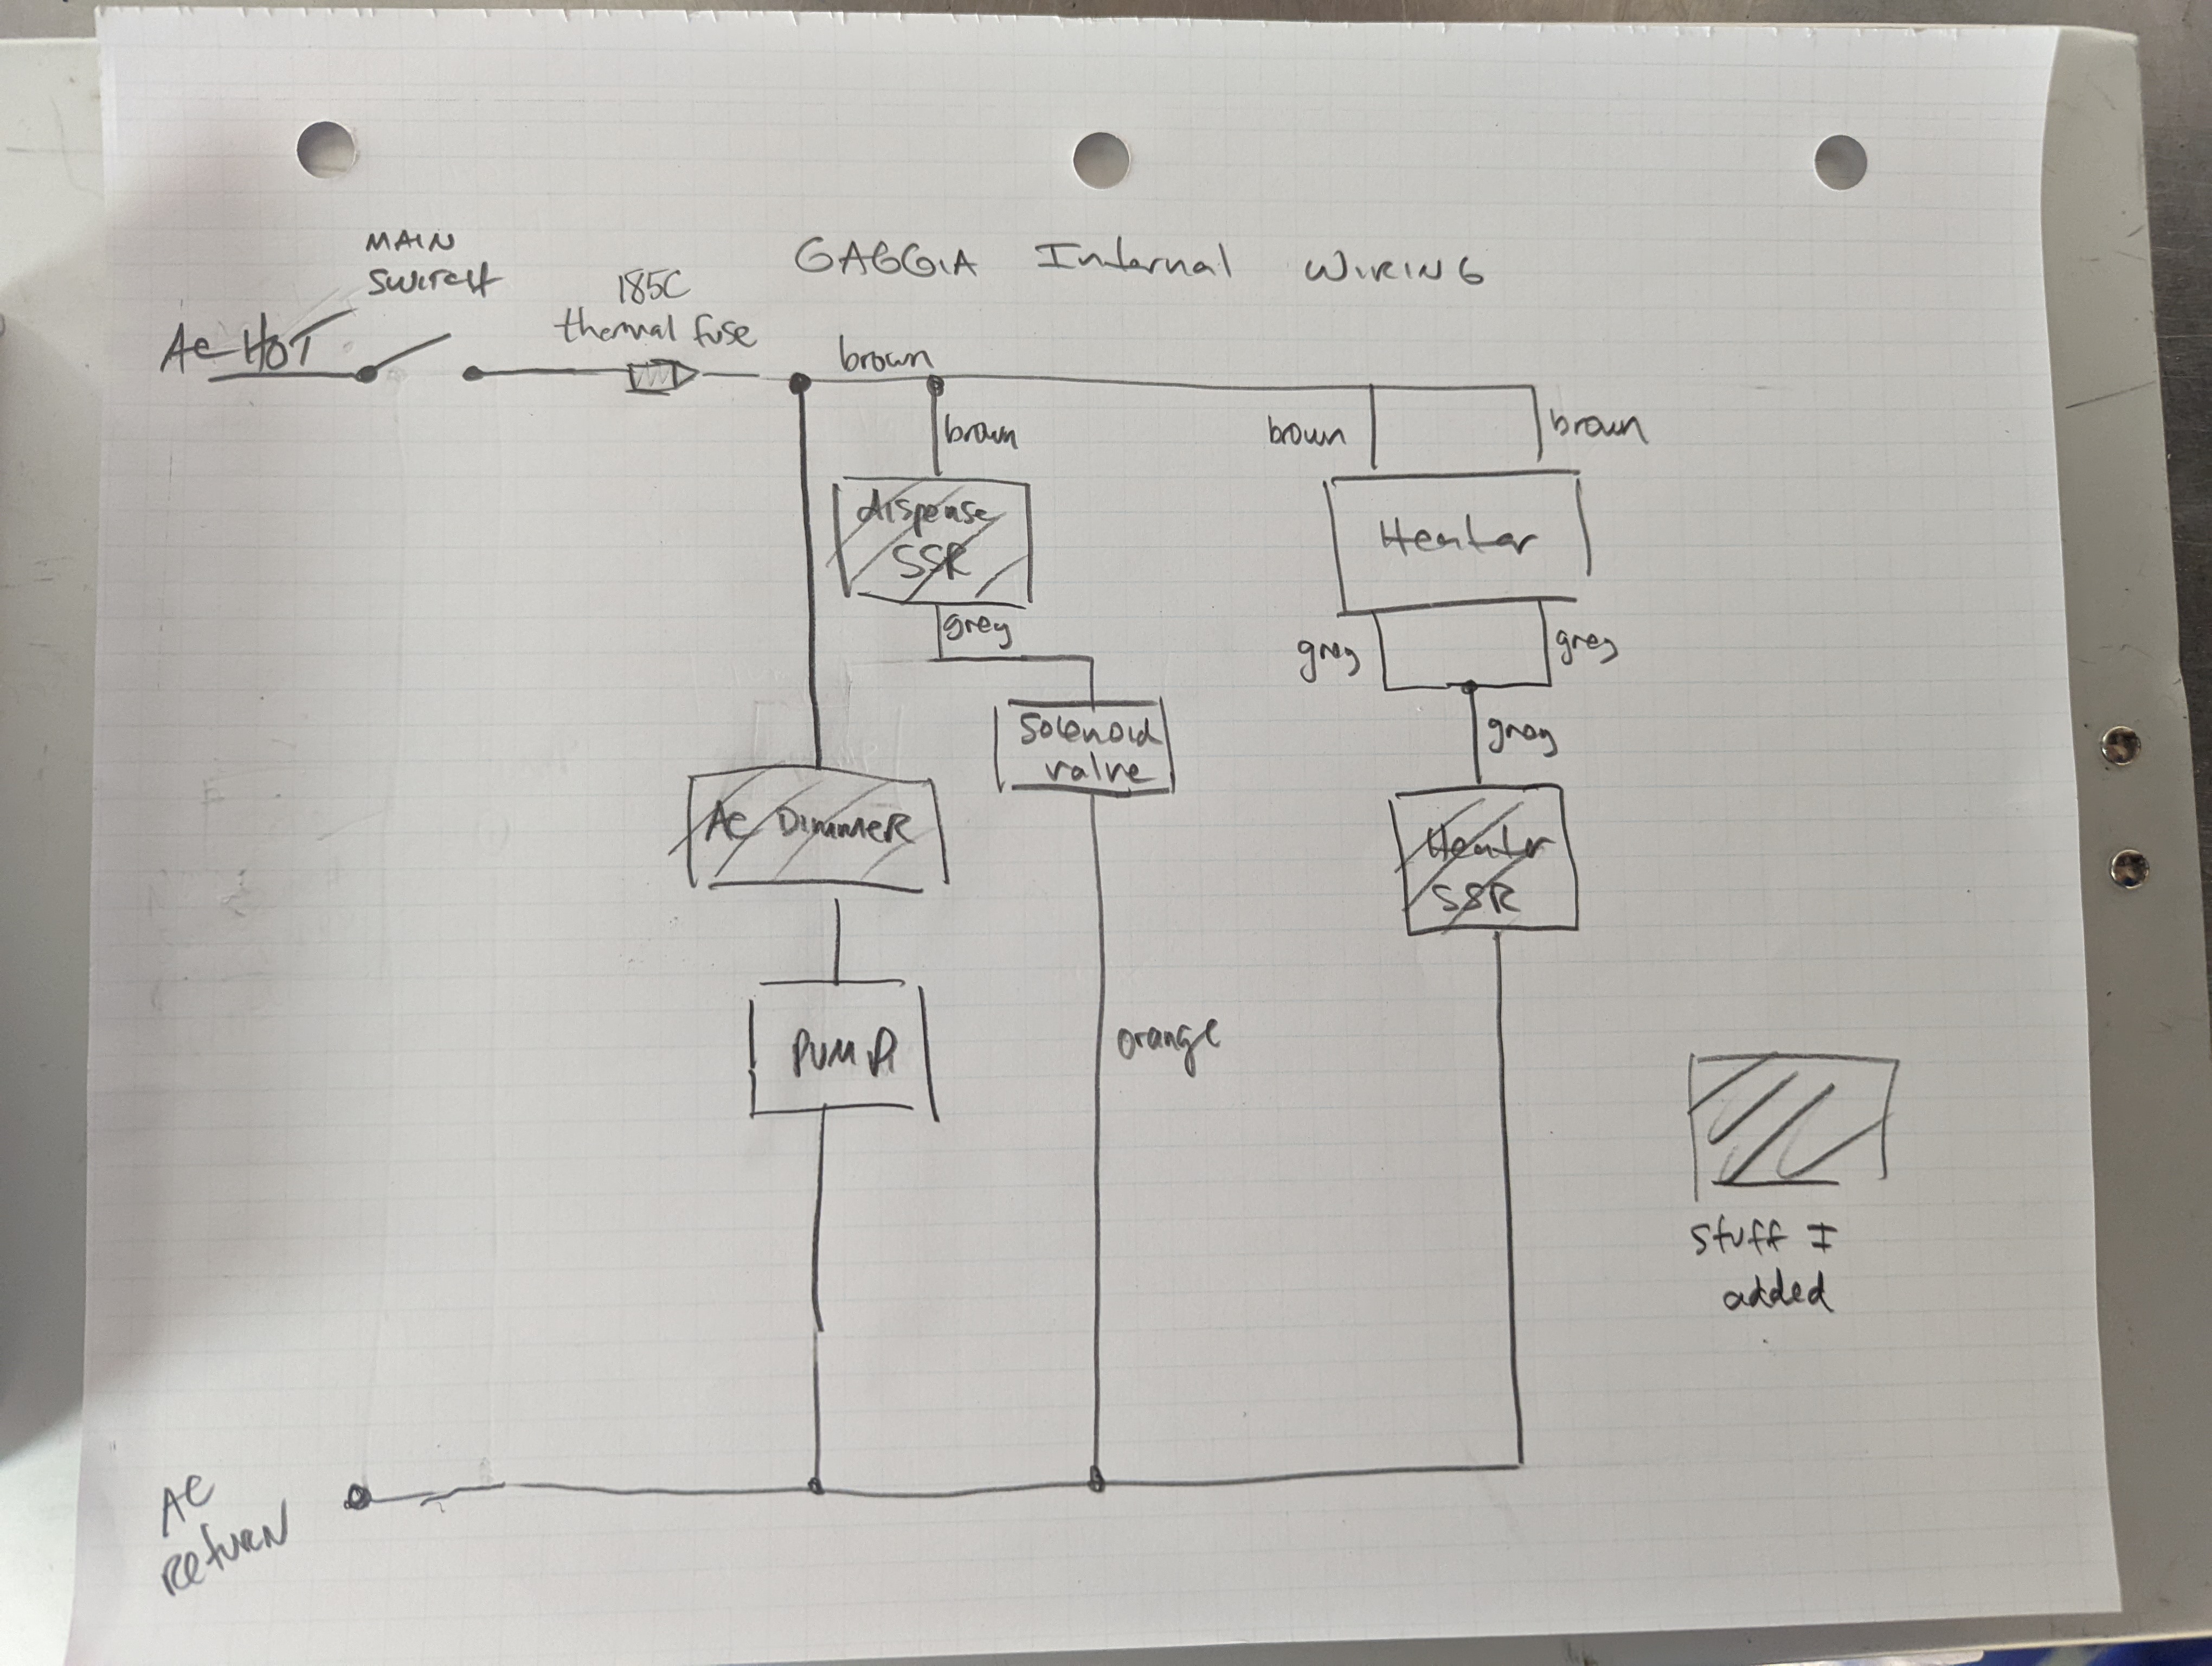 GAGGIA Internal WIRING
MAIN
SWITCH
185C
thermal fuse
AC HOT
brown
brown
brown
brown
dispense
SSR
Heater
grey
grey
grey
Solenoid
valve
grey
AC DIMMER
Heater
SSR
PUMP
orange
stuff I
added
AC
RETURN